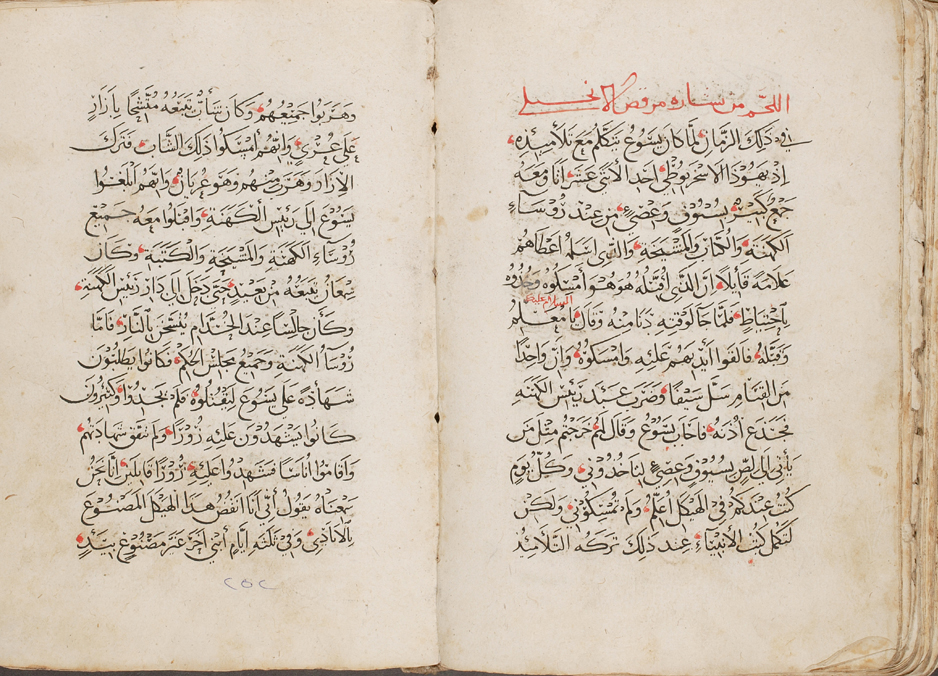 اللحم من بشارة مرقص الانجيلي
في ذلك الزمان لما كان يسوع يتكلم مع تلاميذه
اذ يهوذا الاسخريوطي احد الاثنى عشر اتا ومعه
جمع كثير بسيوف وعصي من عند روساء
الكهنة والكتاب والمشيخة والذي اسلمه اعطاهم
علامة قايلا ان الذي اقبله هو هو امسكوه وخذوه
باحتياط فلما جا لوقته دنا منه وقال يا معلم
السلام عليك
وقبله فالقوا ايديهم عليه وامسكوه وان واحدا
من القيام سل سيفا وضرب عبد رئيس الكهنة
فجدع اذنه فاجاب يسوع وقال لهم خرجتم مثل من
يأتي الى لص بسيوف وعصي لتاخذوني وكل يوم
كنت عندكم في الهيكل اعلم ولم تمسكوني ولكن
لتكمل كتب الانبياء عند ذلك تركه التلاميذ
وهربوا جميعهم وكان شاب يتبعه متشحا بازار
على عري وانهم امسكوا ذلك الشاب فترك
الازار وهرب منهم وهو عريان وانهم ابلغوا
يسوع الى رئيس الكهنة واقبلوا معه جميع
روساء الكهنة والمشيخة والكتبة وكان
سمعان يتبعه من بعيد حتى دخل الى دار رئيس الكهنة
وكان جالسا عند الخدام يستحر بالنار فاما
روسا الكهنة وجميع مجلس الحكم فكانوا يطلبون
شهادة على يسوع ليقتلوه فلم يجدوا وكثيرون
كانوا يشهدون عليه زورا ولم تتفق شهادتهم
واقاموا اناسا فشهدوا عليه زورا قايلين اننا نحن
سمعناه يقول اني انا انقض هذا الهيكل المصنوع
بالايادي وفي ثلثه ايام ابني اخر غير مصنوع بيد
٢٥٢